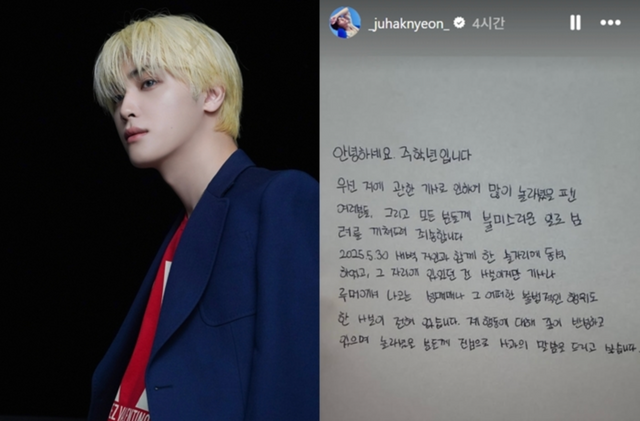 _juhaknyeon_ 4시간
안녕하세요. 주학년입니다
우선 저에 관한 기사로 인하여 많이 놀라셨을 팬
여러분들, 그리고 모든 분들께 불미스러운 일로 심
려를 끼쳐드려 죄송합니다
2025.5.30 새벽 지인과 함께 한 술자리에 동석
하였고, 그 자리에 있었던 건 사실이지만 기사나
루머에서 나오는 성매매나 그 어떠한 불법적인 행위도
한 사실이 전혀 없습니다. 제 행동에 대해 깊이 반성하고
있으며 놀라셨을 분들께 진심으로 사과의 말씀을 드리고 싶습니다.